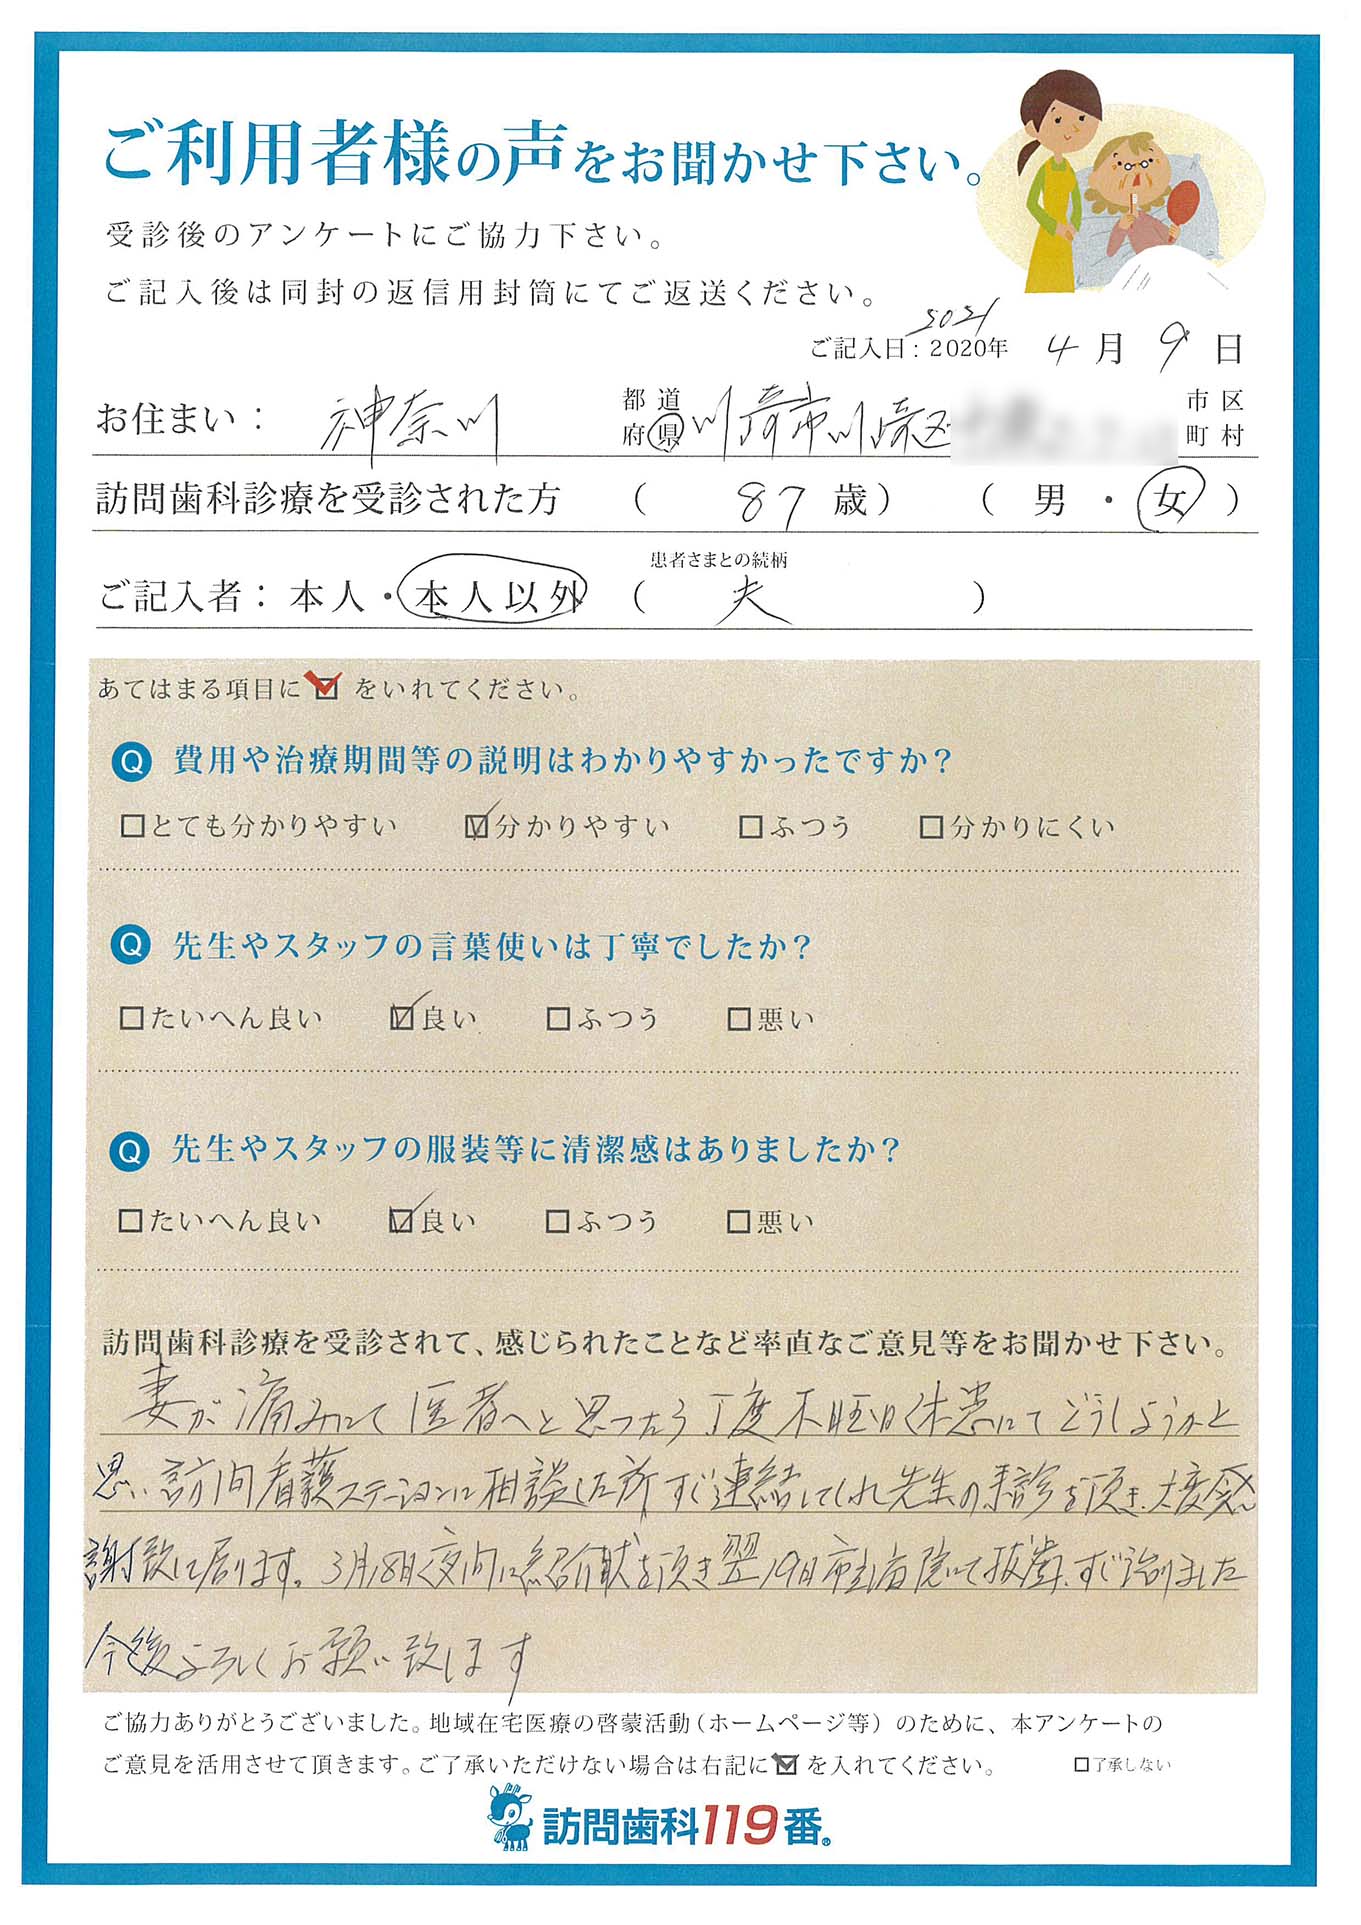 ご利用者様の声をお聞かせ下さい。
受診後のアンケートにご協力下さい。
ご記入後は同封の返信用封筒にてご返送ください。
2021
ご記入日：2020年 4月 9日
お住まい： 神奈川 都道府県 川崎市川崎区 市区町村
訪問歯科診療を受診された方 （ 87 歳） （ 男 ・ 女 ）
患者さまとの続柄
ご記入者：本人・本人以外 （ 夫 ）
あてはまる項目に☑をいれてください。
Q 費用や治療期間等の説明はわかりやすかったですか？
□とても分かりやすい ☑分かりやすい □ふつう □分かりにくい
Q 先生やスタッフの言葉使いは丁寧でしたか？
□たいへん良い ☑良い □ふつう □悪い
Q 先生やスタッフの服装等に清潔感はありましたか？
□たいへん良い ☑良い □ふつう □悪い
訪問歯科診療を受診されて、感じられたことなど率直なご意見等をお聞かせ下さい。
妻が痛みにて医者へと思ったら丁度木曜日休患にてどうしようかと
思い訪問看護ステーションに相談した所すぐ連絡してくれ先生の来診を頂き、大変感
謝致して居ります。3月18日夜間に紹介状を頂き翌19日市立病院にて抜歯、すぐ治りました
今後よろしくお願い致します
ご協力ありがとうございました。地域在宅医療の啓蒙活動（ホームページ等）のために、本アンケートの
ご意見を活用させて頂きます。ご了承いただけない場合は右記に☑を入れてください。 □了承しない
訪問歯科119番®